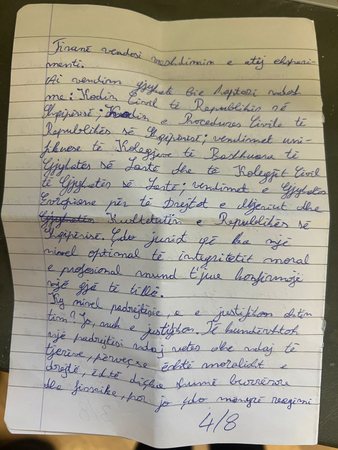 Tiranë vendosi vazhdimin e atij eksperi-
menti.
Ai vendim gjyqësor bie haptazi ndesh
me: Kodin Civil të Republikës së
Shqipërisë; Kodin e Procedurës Civile të
Republikës së Shqipërisë; vendimet uni-
fikuese të Kolegjeve të Bashkuara të
Gjykatës së Lartë dhe të Kolegjit Civil
të Gjykatës së Lartë; vendimet e Gjykatës
Evropiane për të Drejtat e Njeriut dhe
Gjykatës Kushtetutën e Republikës së
Shqipërisë. Çdo jurist që ka një
nivel optimal të integritetit moral
e profesional mund t'jua konfirmojë
një gjë të tillë.
Ky nivel padrejtësie, a e justifikon
? Jo, nuk e justifikon. Të kundërshtosh
një padrejtësi ndaj vetes dhe ndaj të
tjerëve, përveçse është moralisht e
drejtë, është diçka shumë burrërore
dhe fisnike, por jo çdo mënyrë reagimi
4/8